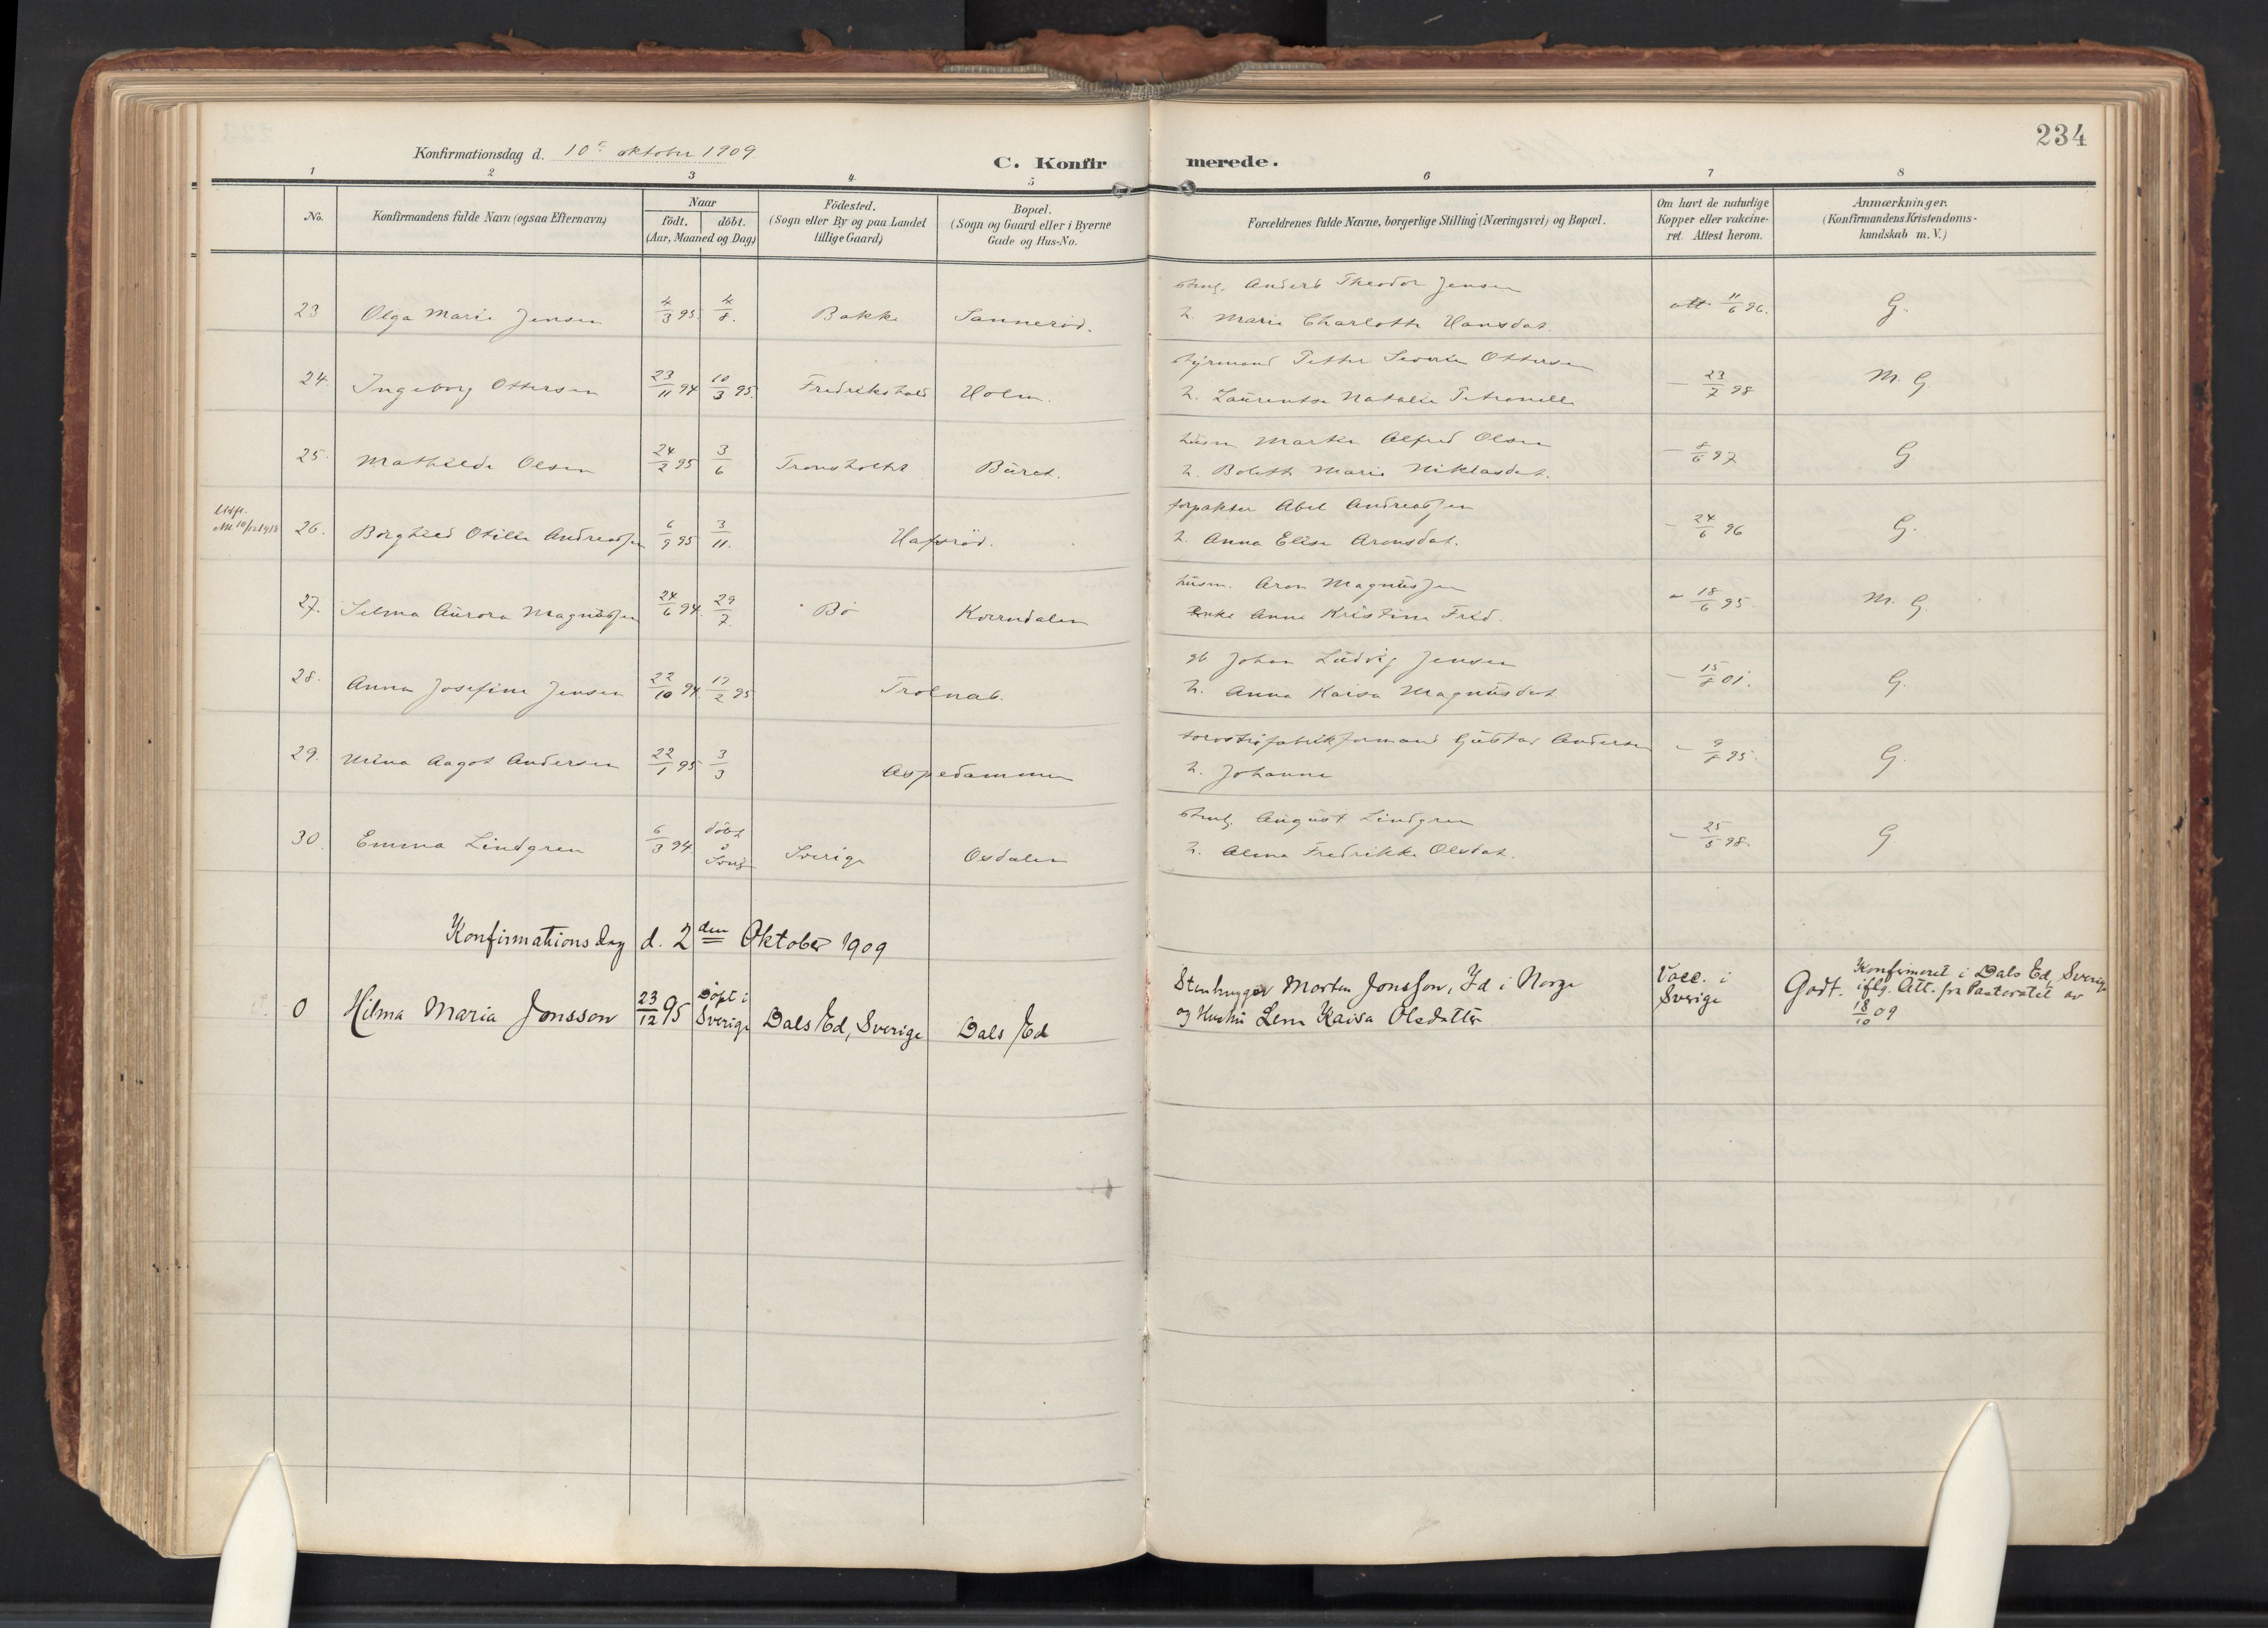 234
Konfirmationsdag d. 10de oktober 1909
C. Konfir merede.
1 2 3 4 5 6 7 8
No.
Konfirmandens fulde Navn (ogsaa Efternavn)
Naar
födt. döbt.
(Aar, Maaned og Dag)
Födested.
(Sogn eller By og paa Landet
tillige Gaard)
Bopæl.
(Sogn og Gaard eller i Byerne
Gade og Hus-No.
Forældrenes fulde Navne, borgerlige Stilling (Næringsvei) og Bopæl.
Om havt de naturlige
Kopper eller vakcine-
ret. Attest herom.
Anmærkninger.
(Konfirmandens Kristendoms-
kundskab m. V.)
23 Olga Marie Jensen 4/3 95. 4/8. Bakke Sannerød. Anders Theodor Jensen
h. Marie Charlotte Hansdat. att. 11/6 96. G.
24. Ingeborg Ottersen 23/11 94 10/3 95. Fredrikshald Holm. styrmand Petter Severin Ottersen
h. Laurentse Natalie Petronelle – 23/7 98 M. G.
25. Mathilde Olsen 24/2 95 3/6 Tronsholtet Büret. husm Martin Alfred Olsen
h. Bolette Marie Niklasdat. – 8/6 97 G
26. Borghild Otilie Andreassen 6/9 95 3/11. Hafsrød. forpakter Abel Andreassen
h. Anna Elise Aronsdat. – 24/6 96 G.
27. Selma Aurora Magnussen 24/6 94. 29/7. Bö Korndalen husm. Aron Magnussen
Enke Anne Kristine Fred. – 18/6 95 M. G.
28. Anna Josefine Jensen 22/10 94. 17/2 95 Trolnab. gb Johan Ludvig Jensen
h. Anna Kaisa Magnusdat. – 15/8 01. G.
29. Aagot Andersen 22/1 95 3/3 Aspedammen torvströfabrikformand Gustav Andersen
h. Johanne – 9/8 95. G.
30. Emma Lindgren 6/3 94. döbt
i Sverig Sverige Osdalen August Lindgren
h. Alma Fredrikke Olsdat. – 25/5 98. G
Konfirmationsdag d. 2den Oktober 1909
0 Hilma Maria Jonsson 23/12 95 Döpt i
Sverige Dals Ed, Sverige Dals Ed Stenhugger Morten Jonsson, Id i Norge
og Hustru Lena Kaisa Olsdatter Vacc. i
Sverige Godt. Konfirmeret i Dals Ed, Sverige
iflg. Att. fra Pastoratet av
18/10 09